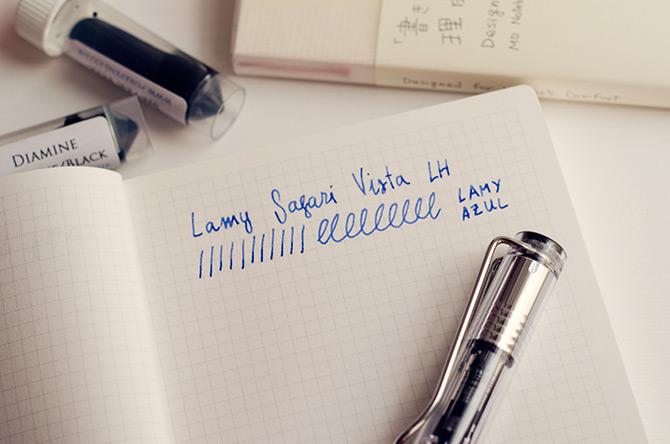 DIAMINE
/BLACK
「書き
理
Design
MD Noteb
Designed for 's Comfort
Lamy Safari Vista LH
LAMY
AZUL